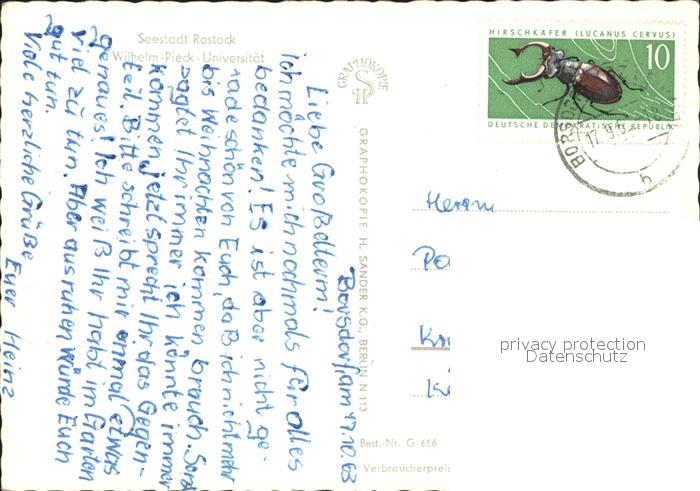 Seestadt Rostock
Wilhelm-Pieck-Universität
Borsdorf am 17.10.63
Liebe Großeltern!
Ich möchte mich nochmals für alles
bedanken! Es ist aber nicht ge-
rade schön von Euch, daß ich nicht mehr
bis Weihnachten kommen brauch. Sonst
sagtet Ihr immer ich könnte immer
kommen, jetzt sprecht Ihr das Gegen-
teil. Bitte schreibt mir einmal etwas
genaues! Ich weiß Ihr habt im Garten
viel zu tun. Aber ausruhen würde Euch
gut tun.
Viele herzliche Grüße
Euer Heinz
GRAPHOKOPIE
GRAPHOKOPIE H. SANDER K.G., BERLIN N 113
Best.-Nr. G 656
Verbraucherpreis
HIRSCHKÄFER (LUCANUS CERVUS)
10
DEUTSCHE DEMOKRATISCHE REPUBLIK
BORSD
b
Herrn
privacy protection
Datenschutz